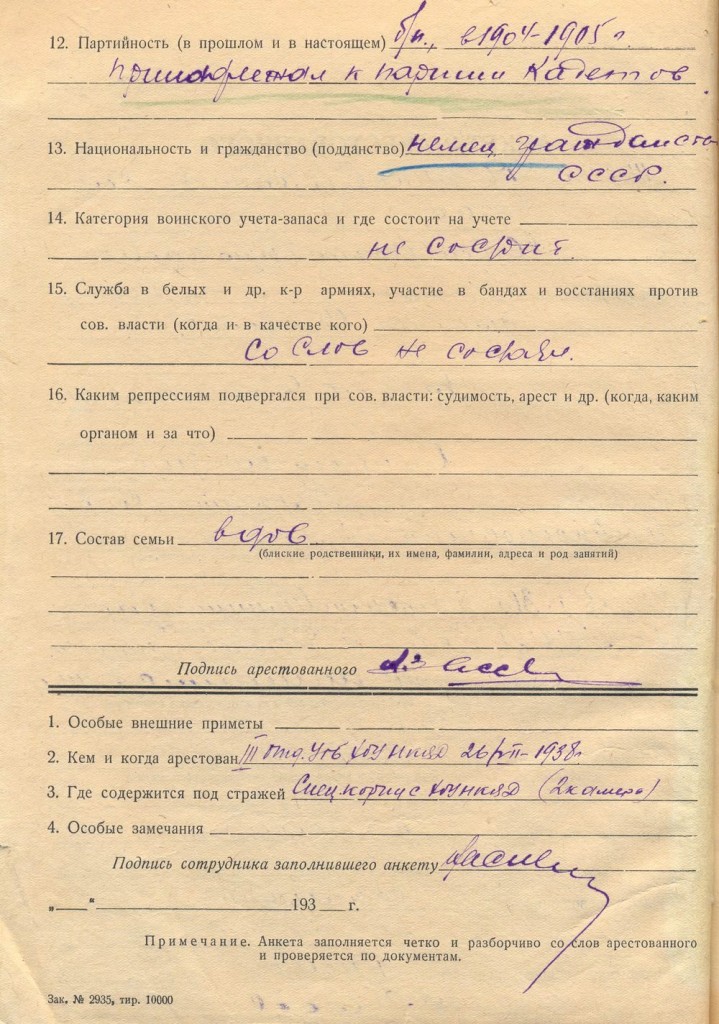 12. Партийность (в прошлом и в настоящем) б/п., в 1904-1905 г.
принадлежал к партии Кадетов
13. Национальность и гражданство (подданство) немец гражданство
СССР.
14. Категория воинского учета-запаса и где состоит на учете
не состоит.
15. Служба в белых и др. к-р армиях, участие в бандах и восстаниях против
сов. власти (когда и в качестве кого)
со слов не состоял.
16. Каким репрессиям подвергался при сов. власти: судимость, арест и др. (когда, каким
органом и за что)
17. Состав семьи вдов
(близкие родственники, их имена, фамилии, адреса и род занятий)
Подпись арестованного
1. Особые внешние приметы
2. Кем и когда арестован III отд. УГБ ХОУ НКВД 26/VII-1938г
3. Где содержится под стражей Спецкорпус ХОУНКВД (2 камера)
4. Особые замечания
Подпись сотрудника заполнившего анкету
„ “ 193 г.
Примечание. Анкета заполняется четко и разборчиво со слов арестованного
и проверяется по документам.
Зак. № 2935, тир. 10000